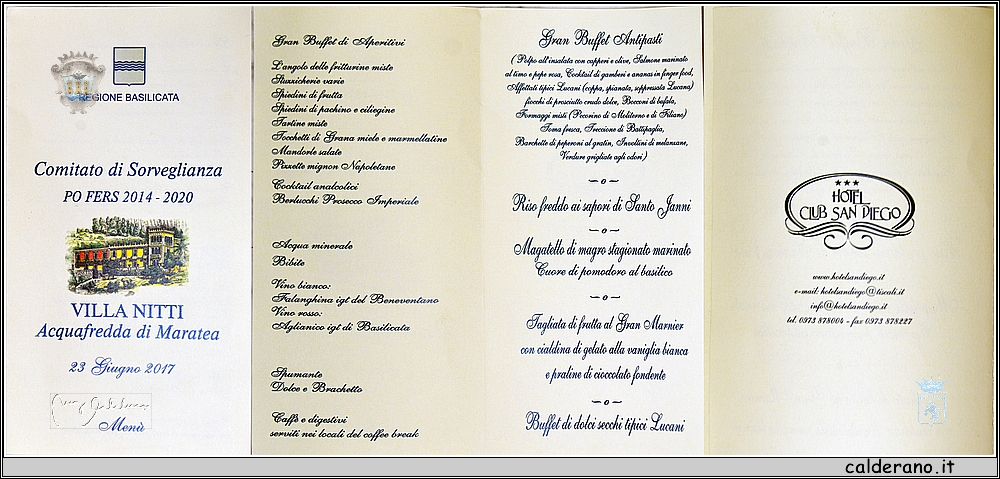 REGIONE BASILICATA
Comitato di Sorveglianza
PO FERS 2014 - 2020
VILLA NITTI
Acquafredda di Maratea
23 Giugno 2017
Menù
Gran Buffet di Aperitivi
L'angolo delle fritturine miste
Stuzzicherie varie
Spiedini di frutta
Spiedini di pachino e ciliegine
Tartine miste
Tocchetti di Grana miele e marmellatine
Mandorle salate
Pizzette mignon Napoletane
Cocktail analcolici
Berlucchi Prosecco Imperiale
Acqua minerale
Bibite
Vino bianco:
Falanghina igt del Beneventano
Vino rosso:
Aglianico igt di Basilicata
Spumante
Dolce e Brachetto
Caffè e digestivi
serviti nei locali del coffee break
Gran Buffet Antipasti
( Polpo all'insalata con capperi e olive, Salmone marinato
al timo e pepe rosa, Cocktail di gamberi e ananas in finger food,
Affettati tipici Lucani (coppa, spianata, soppressata Lucana)
fiocchi di prosciutto crudo dolce, Bocconi di bufala,
Formaggi misti (Pecorino di Moliterno e di Filiano)
Toma fresca, Treccione di Battipaglia,
Barchette di peperoni al gratin, Involtini di melanzane,
Verdure grigliate agli odori)
—o—
Riso freddo ai sapori di Santo Janni
—o—
Magatello di magro stagionato marinato
Cuore di pomodoro al basilico
—o—
Tagliata di frutta al Gran Marnier
con cialdina di gelato alla vaniglia bianca
e praline di cioccolato fondente
—o—
Buffet di dolci secchi tipici Lucani
HOTEL
CLUB SAN DIEGO
www.hotelsandiego.it
e-mail: hotelsandiego@tiscali.it
info@hotelsandiego.it
tel. 0973 878004 - fax 0973 878227
calderano.it